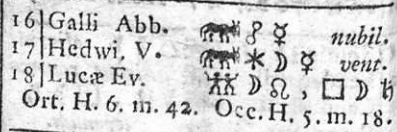 16 Galli Abb. ♉ ☍ ☿ nubil.
17 Hedwi. V. ♉ ⚹ ☽ ☿ vent.
18 Lucæ Ev. ♊ ☽ ☊, □ ☽ ♄
Ort. H. 6. m. 42. Occ. H. 5. m. 18.